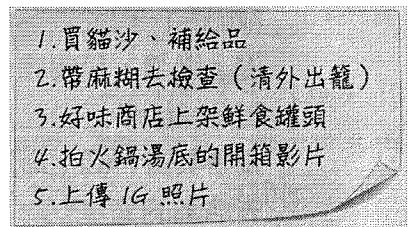 1.買貓沙、補給品
2.帶麻糊去檢查（清外出籠）
3.好味商店上架鮮食罐頭
4.拍火鍋湯底的開箱影片
5.上傳IG照片